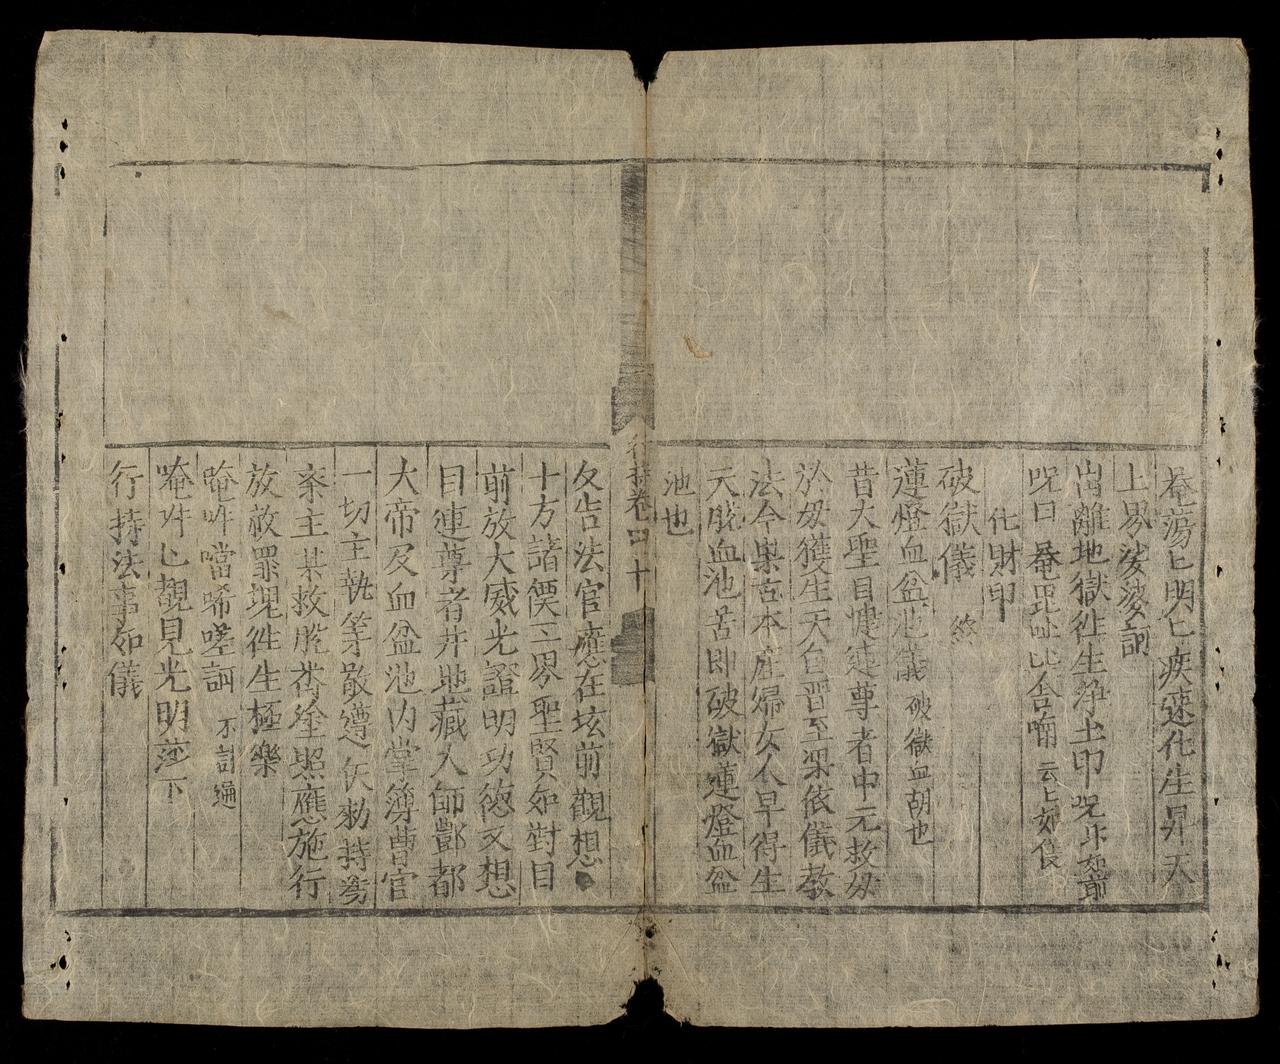 菴蕩匕明匕疾速化生昇天
上界娑婆訶
出離地獄徃生浄土印呪
呪曰 菴毘 舍 云上如儀
化財印
破獄儀 終
蓮燈血盆池儀 破獄血胡也
昔大聖目犍連尊者中元救母
於母獲生天自晋至梁依儀教
法今集古本産婦女人早得生
天脱血池苦即破獄蓮燈血盆
池也
行持卷四 十
夂告法官應在坛前觀想
十方諸僊三界聖賢如對目
前放大威光證明功德又想
目連尊者并地藏人師酆都
大帝及血盆池内掌簿曹官
一切主執等敬遵 勑持
斋主某救脱 塗照應施行
放赦罪
徃生極樂
唵吽 㗭唏嗟訶
唵吽匕覩見光明 下
行持法事如儀